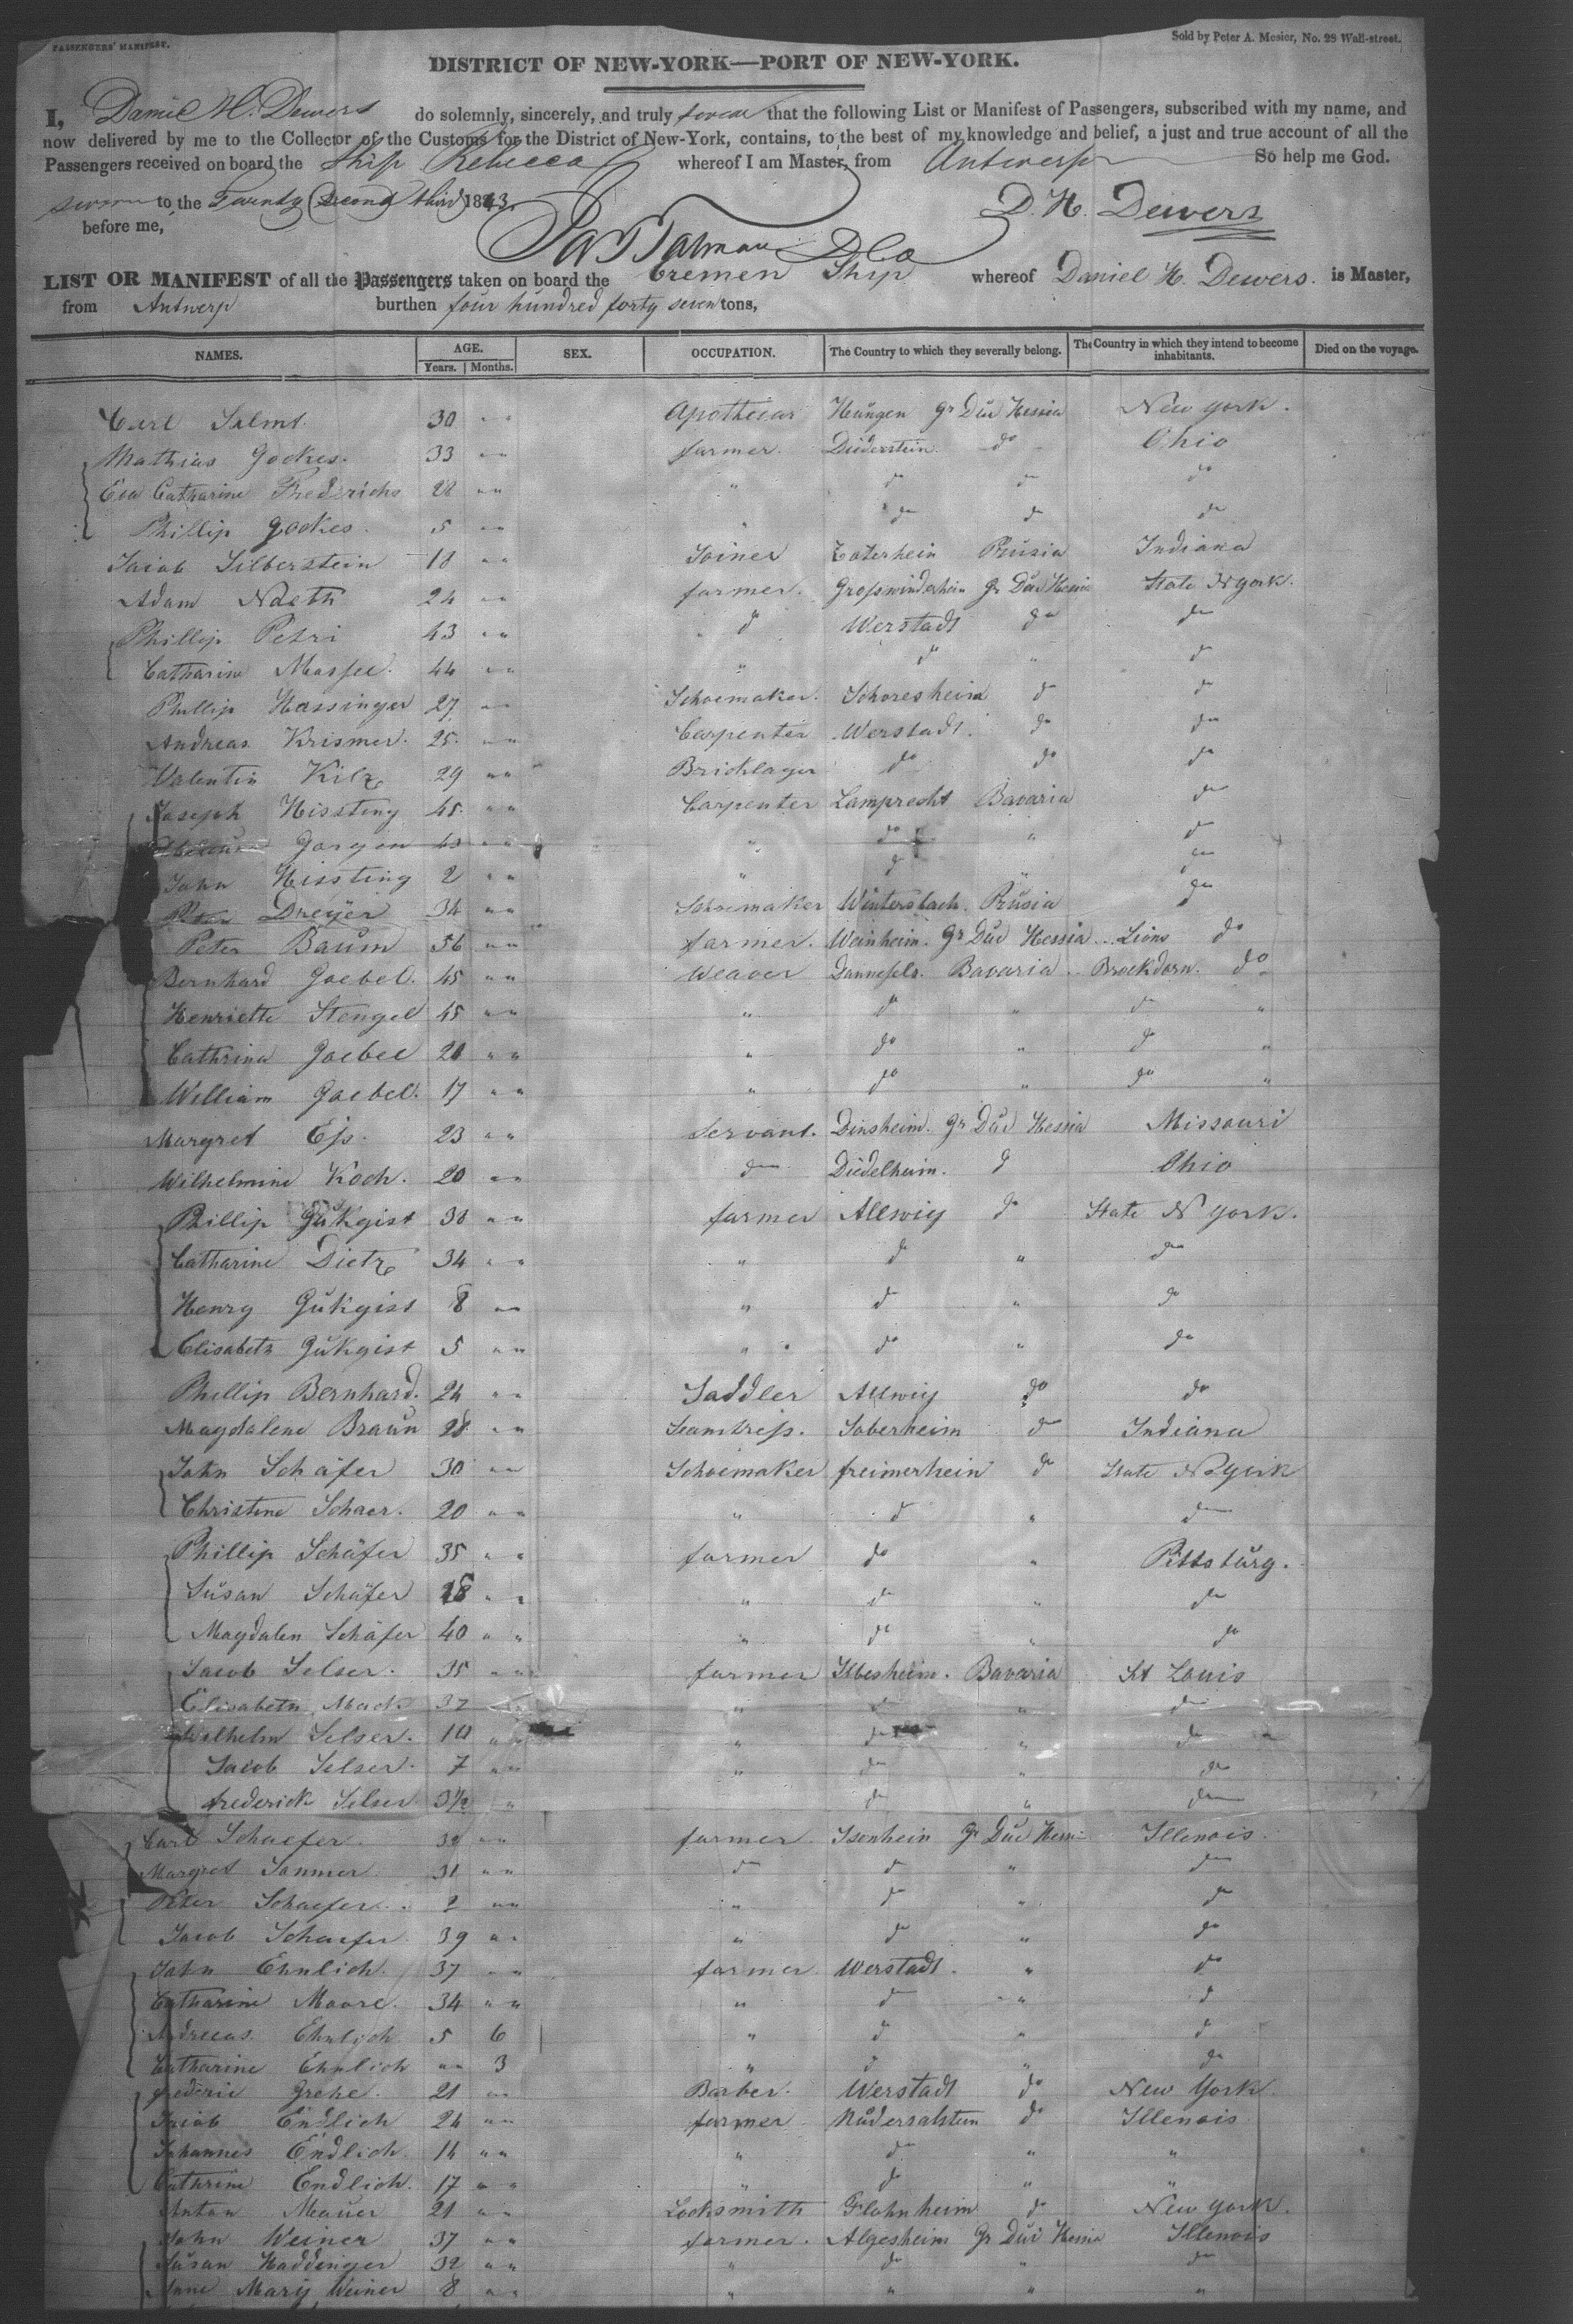 PASSENGERS' MANIFEST.
Sold by Peter A. Mesier, No. 28 Wall-street.
DISTRICT OF NEW-YORK—PORT OF NEW-YORK.
I, Daniel H. Dewers do solemnly, sincerely, and truly swear that the following List or Manifest of Passengers, subscribed with my name, and
now delivered by me to the Collector of the Customs for the District of New-York, contains, to the best of my knowledge and belief, a just and true account of all the
Passengers received on board the Ship Rebecca whereof I am Master, from Antwerp So help me God.
sworn to the Twenty Second third 1843
before me, D. H. Dewers
LIST OR MANIFEST of all the Passengers taken on board the Bremen Ship whereof Daniel H. Dewers. is Master,
from Antwerp burthen four hundred forty seven tons,
NAMES. AGE. Years. Months. SEX. OCCUPATION. The Country to which they severally belong. The Country in which they intend to become inhabitants. Died on the voyage.
Carl Salmt. 30 " " Apothecar Hungen Gr Duc Hessia New york.
Mathias Gockes. 33 " " farmer. do Ohio
Eva Catharine Frederichs 28 " " " do do do
Phillip Gockes. 5 " " " do do do
Jacob Silberstein 18 " " Joiner Prusia Indiana
Adam Naeth 24 " " farmer. Gr Duc Hessia State N york.
Phillip Petri 43 " " do Werstadt do do
Catharine 44 " " " do " do
Phillip Hassinger 27 " " Schoemaker. Schoresheim do do
Andreas Krismer. 25. " " Carpenter Werstadt. do do
Valentin Kilz 29 " " Bricklayer do do do
Joseph Hissting 45. " " Carpenter Lamprecht Bavaria do
Gorgen 43 " " " do " do
John Hissting 2 " " " do " do
Dreÿer 34 " " Schoemaker Wintersbach. Prusia do
Peter Baum 56 " " farmer. Weinheim. Gr Duc Hessia Lions do
Bernhard Goebel. 45 " " Weaver Dannefels. Bavaria Brockdorn. do
Henriette Stengel 45 " " " do " do "
Cathrina Goebel 20 " " " do " do "
William Goebel. 17 " " " do " do "
Margret Ess. 23 " " Servant. Dinsheim. Gr Duc Hessia Missouri
Wilhelmine Koch. 20 " " do Dudelheim. do Ohio
Phillip Gukgist 38 " " farmer Allwig do State N york.
Catharine Dietz 34 " " " do " do
Henry Gukgist 8 " " do " do
Elisabetz Gukgist 5 " " " do " do
Phillip Bernhard. 24 " " Saddler Allwig do do
Magdalene Braun 28 " " Seamtress. Soberheim do Indiana
John Schäfer 30 " " Schoemaker freimerhein do State N york
Christine Schaer. 20 " " " do " do
Phillip Schäfer 35 " " farmer do " Pittsburg.
Susan Schäfer 18 " " " do " do
Magdalen Schäfer 40 " " " do " do
Jacob Selser. 35 " " farmer Ilbesheim. Bavaria St Louis
Elisabeth Mack 37 " do " do
Wilhelm Selser. 10 " " do " do
Jacob Selser. 7 " " " do " do
frederick Selser 3 1/2 " do " do
Carl Schaefer. " " farmer. Isenhein Gr Duc Hessia Illenois.
Margret Sommer 31 " " do do " do
Peter Schaefer. 2 " " " do " do
Jacob Schaefer 39 " " " do " do
John Ehnlich. 37 " " farmer. Werstadt. " do
Catharine Moore. 34 " " " do " do
Andreeas. Ehnlich 5 6 " do " do
Catharine Ehnlich " " 3 " do " do
frederic Grehe. 21 " " Barber. Werstadt do New York.
Jacob Endlich 24 " " farmer do Illenois
Johannes Endlich. 14 " " " do " "
Cathrine Endlich. 17 " " " do " "
Anton Mauer 21 " " Locksmith Flohnheim do New york.
John Weiner 37 " " farmer. Algesheim Gr Duc Hessia Illenois
Susan Haddinger 32 " " " do " do
Anne Mary Weiner 8 " " " " " "